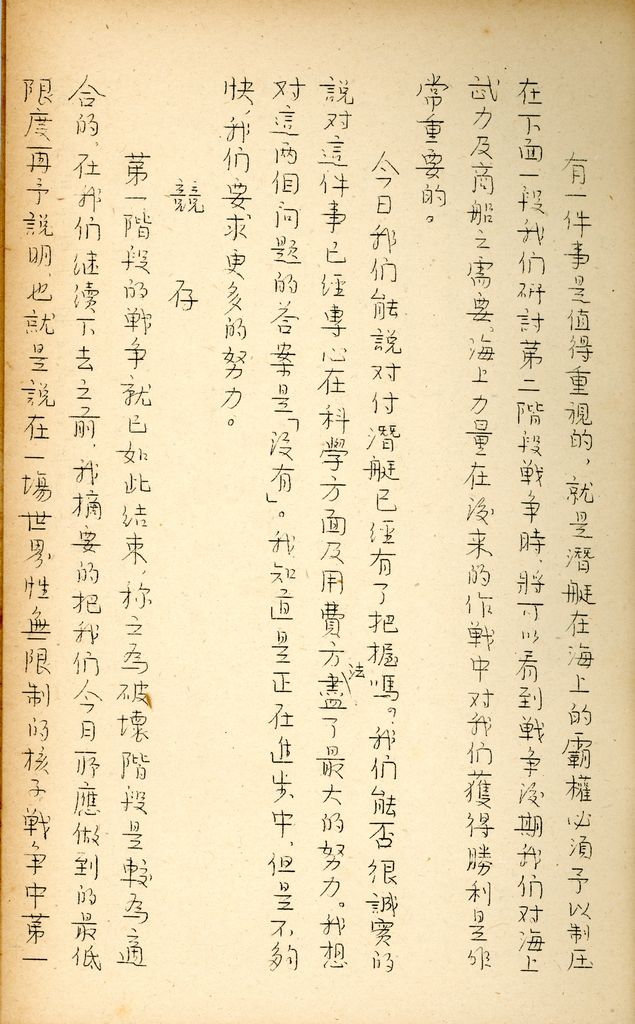 有一件事是值得重視的，就是潛艇在海上的霸權必須予以制压
在下面一段我们研討第二階段戰争時，將可以看到戰争後期我们对海上
武力及商船之需要。海上力量在後来的作戰中对我们獲得勝利是非
常重要的。
今日我们能説对付潛艇已經有了把握嗎。我们能否很誠实的
説对這件事已經専心在科學方面及用費方法盡了最大的努力。我想
对這两個问题的答案是「没有」。我知道是正在進步中，但是不夠
快，我们要求更多的努力。
競存
第一階段的戰争就已如此结束，称之為破壞階段是較為適
合的，在我们继續下去之前，我摘要的把我们今日所應做到的最低
限度再予説明，也就是説在一場世界性無限制的核子戰争中第一